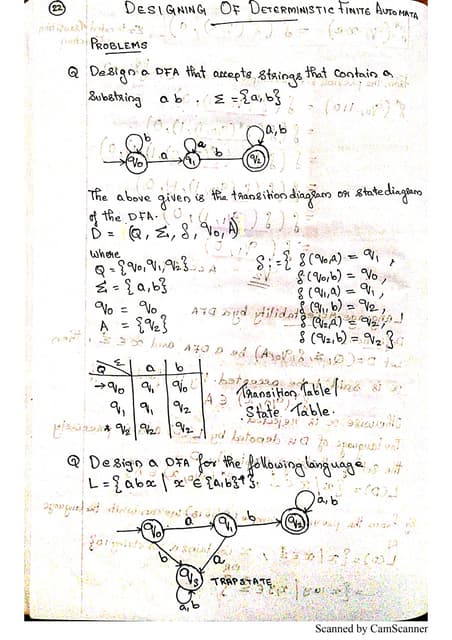 22
DESIGNING OF DETERMINISTIC FINITE AUTOMATA
PROBLEMS
Q Design a DFA that accepts strings that contain a
substring ab. Σ = {a, b}
b a a,b
q0 a q1 b q2
The above given is the transition diagram or state diagram
of the DFA.
D = (Q, Σ, δ, q0, A)
where
Q = {q0, q1, q2}
Σ = {a, b}
q0 = q0
A = {q2}
δ := { δ(q0,a) = q1,
δ(q0,b) = q0,
δ(q1,a) = q1,
δ(q1,b) = q2,
δ(q2,a) = q2,
δ(q2,b) = q2 }
Q Σ a b
→q0 q1 q0
q1 q1 q2
* q2 q2 q2
Transition Table/
State Table.
Q Design a DFA for the following language
a,b
q0 a q1 b q2
b a
q3 TRAPSTATE
a,b
Scanned by CamScanner